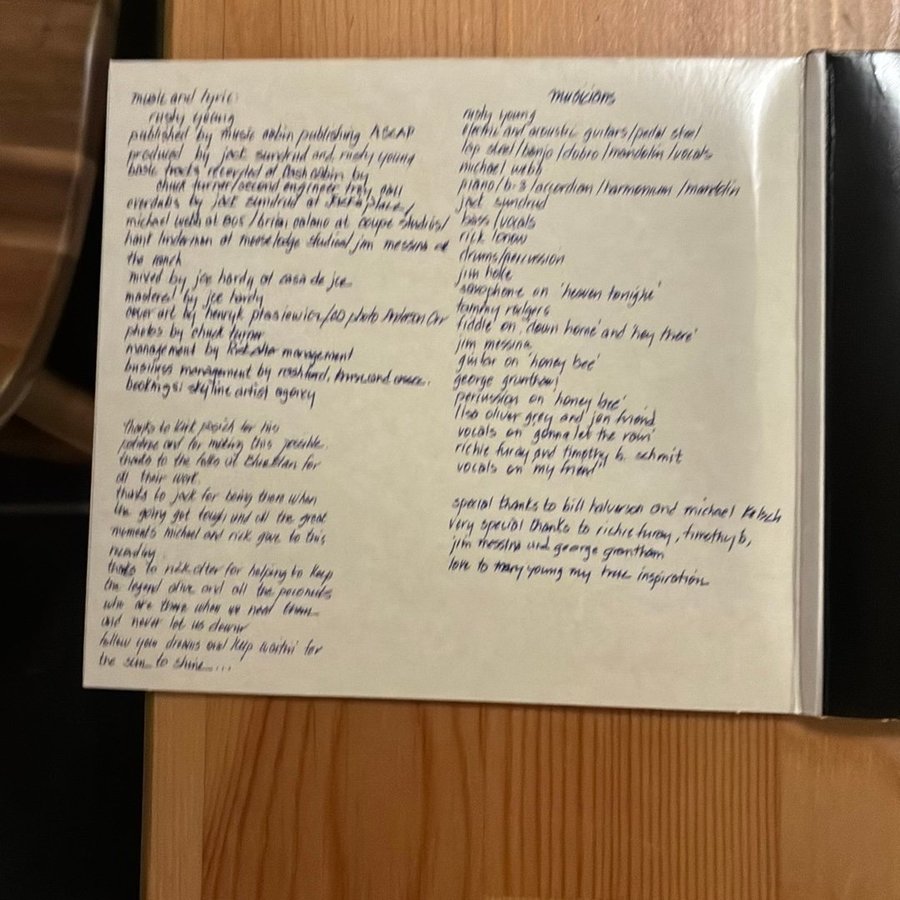 music and lyric:
rusty young
published by music cabin publishing ASCAP
produced by jack sundrud and rusty young
basic tracks recorded at cash cabin by
chuck turner/second engineer trey call
overdubs by jack sundrud at jack's place/
michael webb at BOS/brian calano at coupe studios/
hank linderman at moose lodge studios/jim messina at
the ranch
mixed by joe hardy at casa de joe
mastered by joe hardy
cover art by henryk ptasiewicz/CD photo Anderson Orr
photos by chuck turner
management by Rick alter management
business management by
bookings: skyline artist agency
thanks to kirk pasich for his
patience and for making this possible.
thanks to the folks at Blue Elan for
all their work.
thanks to jack for being there when
the going got tough and all the great
moments michael and rick gave to this
recording.
thanks to rick alter for helping to keep
the legend alive and all the poconuts
who are there when we need them
and never let us down
follow your dreams and keep waitin' for
the sun to shine....
musicians
rusty young
electric and acoustic guitars/pedal steel
lap steel/banjo/dobro/mandolin/vocals
michael webb
piano/b-3/accordian/harmonium/mandolin
jack sundrud
bass/vocals
rick lonow
drums/percussion
jim hoke
saxophone on 'heaven tonight'
tammy rodgers
fiddle on 'down home' and 'hey there'
jim messina
guitar on 'honey bee'
george grantham
percussion on 'honey bee'
lisa oliver grey and jon friend
vocals on 'gonna let the rain'
richie furay and timothy b. schmit
vocals on 'my friend'
special thanks to bill halverson and michael Kelsch
very special thanks to richie furay, timothy b,
jim messina and george grantham
love to mary young my true inspiration